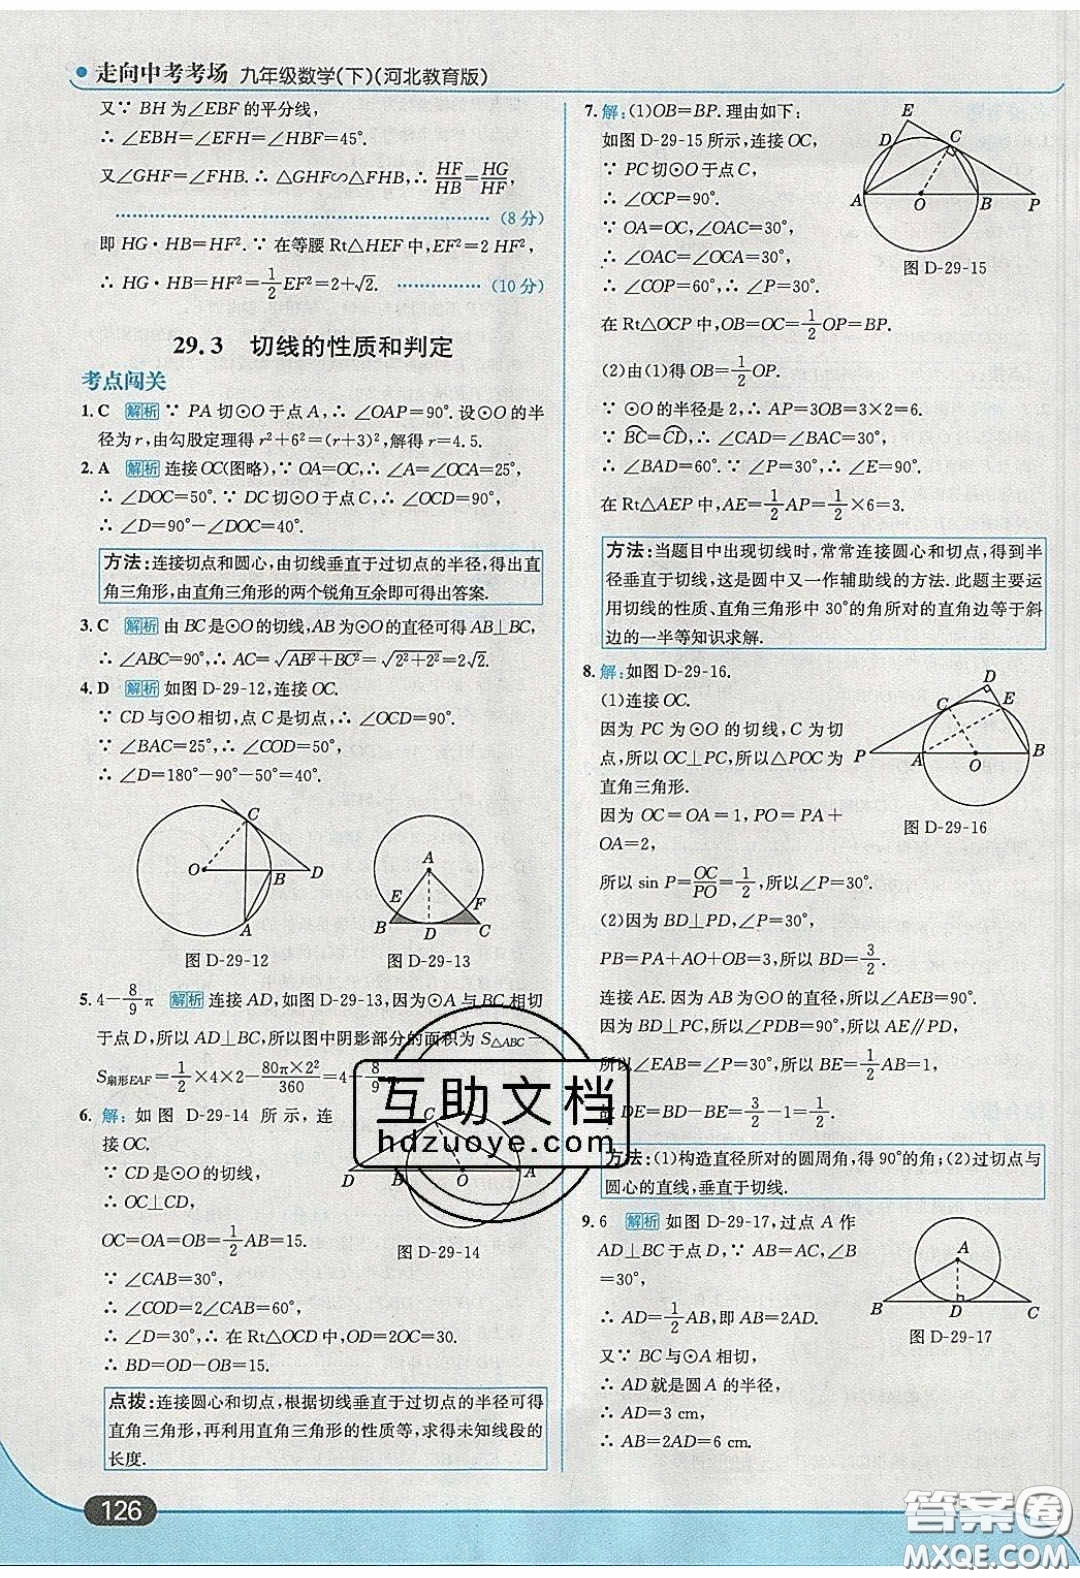 走向中考考场 九年级数学(下)(河北教育版)
又∵ BH 为∠EBF 的平分线,
∴ ∠EBH=∠EFH=∠HBF=45°.
又∠GHF=∠FHB. ∴ △GHF∽△FHB, ∴ HF/HB=HG/HF,
(8 分)
即 HG·HB=HF². ∵ 在等腰 Rt△HEF 中, EF²=2 HF²,
∴ HG·HB=HF²=1/2EF²=2+√2. (10 分)
29.3 切线的性质和判定
考点闯关
1. C 解析 ∵ PA 切⊙O 于点 A, ∴ ∠OAP=90°. 设⊙O 的半
径为 r, 由勾股定理得 r²+6²=(r+3)², 解得 r=4.5.
2. A 解析 连接 OC(图略), ∵ OA=OC, ∴ ∠A=∠OCA=25°,
∴ ∠DOC=50°. ∵ DC 切⊙O 于点 C, ∴ ∠OCD=90°,
∴ ∠D=90°-∠DOC=40°.
方法: 连接切点和圆心, 由切线垂直于过切点的半径, 得出直
角三角形, 由直角三角形的两个锐角互余即可得出答案.
3. C 解析 由 BC 是⊙O 的切线, AB 为⊙O 的直径可得 AB⊥BC,
∴ ∠ABC=90°, ∴ AC=√(AB²+BC²)=√(2²+2²)=2√2.
4. D 解析 如图 D-29-12, 连接 OC.
∵ CD 与⊙O 相切, 点 C 是切点, ∴ ∠OCD=90°.
∵ ∠BAC=25°, ∴ ∠COD=50°,
∴ ∠D=180°-90°-50°=40°.
C
O
B
D
A
图 D-29-12
A
E
F
B
D
C
图 D-29-13
5. 4-8/9π 解析 连接 AD, 如图 D-29-13, 因为⊙A 与 BC 相切
于点 D, 所以 AD⊥BC, 所以图中阴影部分的面积为 S△ABC-
S扇形EAF=1/2×4×2-80π×2²/360=4-8/9π.
6. 解: 如图 D-29-14 所示, 连
接 OC.
∵ CD 是⊙O 的切线,
∴ OC⊥CD,
OC=OA=OB=1/2AB=15.
∵ ∠CAB=30°,
∴ ∠COD=2∠CAB=60°,
∴ ∠D=30°, ∴ 在 Rt△OCD 中, OD=2OC=30.
∴ BD=OD-OB=15.
C
D
B
O
A
图 D-29-14
点拨: 连接圆心和切点, 根据切线垂直于过切点的半径可得
直角三角形, 再利用直角三角形的性质等, 求得未知线段的
长度.
126
7. 解: (1)OB=BP. 理由如下:
如图 D-29-15 所示, 连接 OC,
∵ PC 切⊙O 于点 C,
∴ ∠OCP=90°.
∵ OA=OC, ∠OAC=30°,
∴ ∠OAC=∠OCA=30°,
∴ ∠COP=60°, ∴ ∠P=30°.
在 Rt△OCP 中, OB=OC=1/2OP=BP.
E
D
C
A
O
B
P
图 D-29-15
(2)由(1)得 OB=1/2OP.
∵ ⊙O 的半径是 2, ∴ AP=3OB=3×2=6.
∵ BC=CD, ∴ ∠CAD=∠BAC=30°,
∴ ∠BAD=60°. ∵ ∠P=30°, ∴ ∠E=90°.
在 Rt△AEP 中, AE=1/2AP=1/2×6=3.
方法: 当题目中出现切线时, 常常连接圆心和切点, 得到半
径垂直于切线, 这是圆中又一作辅助线的方法. 此题主要运
用切线的性质、直角三角形中 30°的角所对的直角边等于斜
边的一半等知识求解.
8. 解: 如图 D-29-16.
(1)连接 OC.
因为 PC 为⊙O 的切线, C 为切
点, 所以 OC⊥PC, 所以△POC 为
直角三角形.
因为 OC=OA=1, PO=PA+
OA=2,
D
C
E
P
A
O
B
图 D-29-16
所以 sin P=OC/PO=1/2, 所以∠P=30°.
(2)因为 BD⊥PD, ∠P=30°,
PB=PA+AO+OB=3, 所以 BD=3/2.
连接 AE. 因为 AB 为⊙O 的直径, 所以∠AEB=90°.
因为 BD⊥PD, 所以∠PDB=90°, 所以 AE∥PD,
所以∠EAB=∠P=30°, 所以 BE=1/2AB=1,
故 DE=BD-BE=3/2-1=1/2.
方法: (1)构造直径所对的圆周角, 得 90°的角; (2)过切点与
圆心的直线, 垂直于切线.
9. 6 解析 如图 D-29-17, 过点 A 作
AD⊥BC 于点 D, ∵ AB=AC, ∠B
=30°,
∴ AD=1/2AB, 即 AB=2AD.
又∵ BC 与⊙A 相切,
∴ AD 就是圆 A 的半径,
∴ AD=3 cm,
∴ AB=2AD=6 cm.
A
B
D
C
图 D-29-17
互助文档
hdzuoye.com
答案圈
MXQE.COM